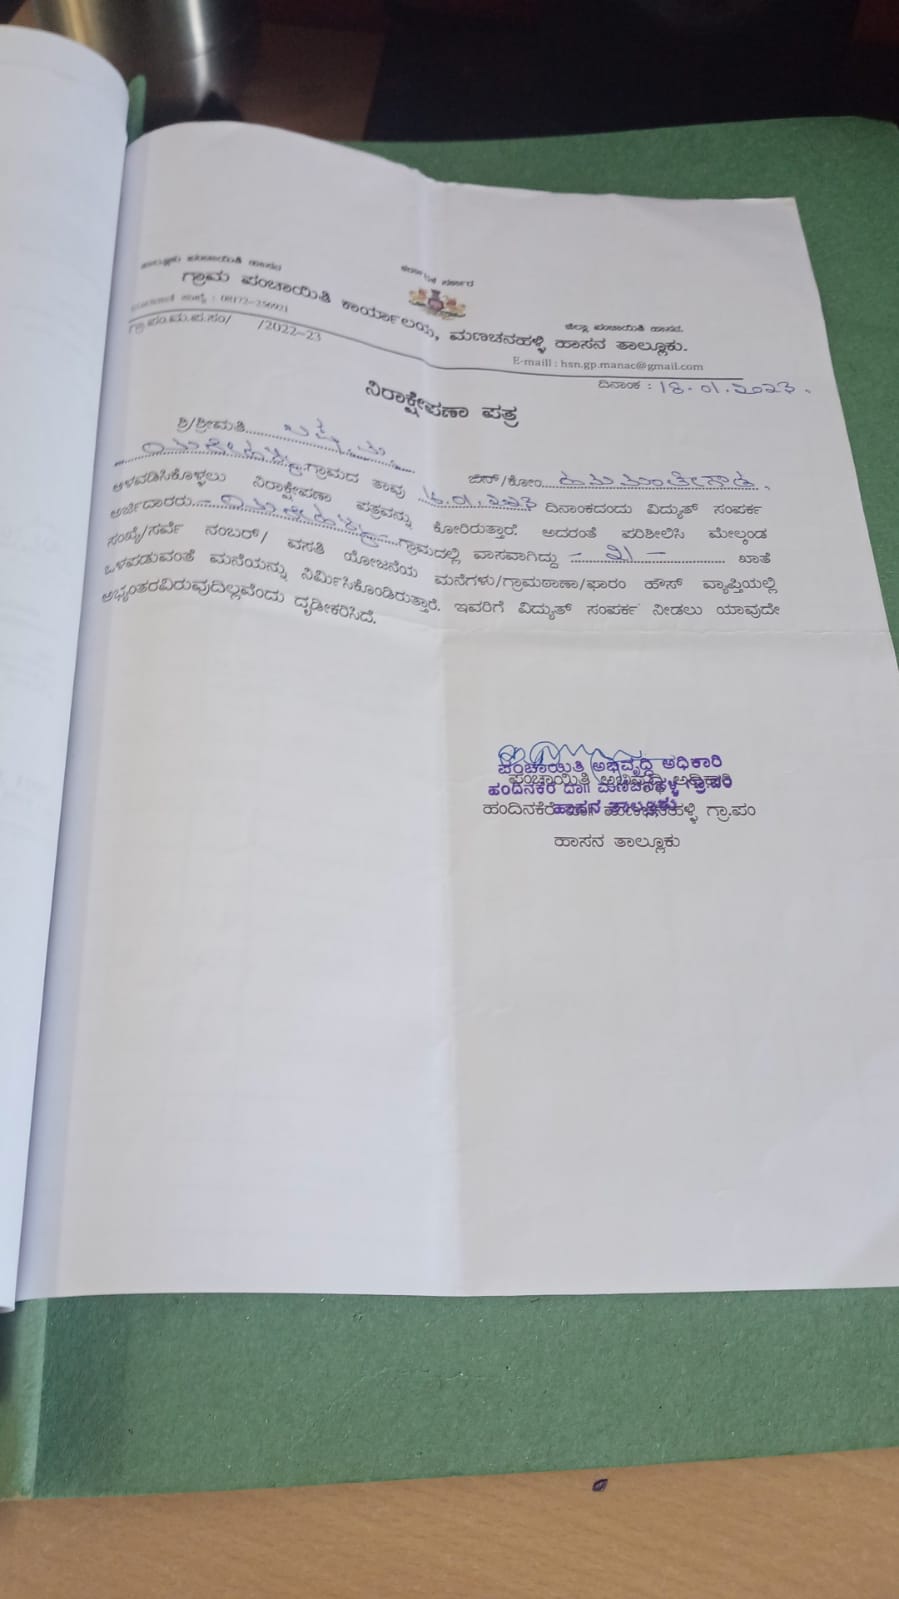 ಕರ್ನಾಟಕ ಸರ್ಕಾರ
ತಾಲ್ಲೂಕು ಪಂಚಾಯಿತಿ ಹಾಸನ
ಜಿಲ್ಲಾ ಪಂಚಾಯಿತಿ ಹಾಸನ.
ಗ್ರಾಮ ಪಂಚಾಯಿತಿ ಕಾರ್ಯಾಲಯ, ಮಣಚನಹಳ್ಳಿ ಹಾಸನ ತಾಲ್ಲೂಕು.
ದೂರವಾಣಿ ಸಂಖ್ಯೆ : 08172-256921
E-maill : hsn.gp.manac@gmail.com
ಗ್ರಾ.ಪಂ.ಮ.ಪ.ಸಂ/ /2022-23
ದಿನಾಂಕ : 18.01.2023.
ನಿರಾಕ್ಷೇಪಣಾ ಪತ್ರ
ಶ್ರಿ/ಶ್ರೀಮತಿ
ಬಿನ್/ಕೋಂ ಹನುಮಂತೇಗೌಡ,
ಗ್ರಾಮದ ತಾವು 18.01.2023 ದಿನಾಂಕದಂದು ವಿದ್ಯುತ್ ಸಂಪರ್ಕ
ಅಳವಡಿಸಿಕೊಳ್ಳಲು ನಿರಾಕ್ಷೇಪಣಾ ಪತ್ರವನ್ನು ಕೋರಿರುತ್ತಾರೆ. ಅದರಂತೆ ಪರಿಶೀಲಿಸಿ ಮೇಲ್ಕಂಡ
ಅರ್ಜಿದಾರರು ಗ್ರಾಮದಲ್ಲಿ ವಾಸವಾಗಿದ್ದು ಖಾತೆ
ಸಂಖ್ಯೆ/ಸರ್ವೆ ನಂಬರ್/ ವಸತಿ ಯೋಜನೆಯ ಮನೆಗಳು/ಗ್ರಾಮಠಾಣಾ/ಫಾರಂ ಹೌಸ್ ವ್ಯಾಪ್ತಿಯಲ್ಲಿ
ಒಳಪಡುವಂತೆ ಮನೆಯನ್ನು ನಿರ್ಮಿಸಿಕೊಂಡಿರುತ್ತಾರೆ. ಇವರಿಗೆ ವಿದ್ಯುತ್ ಸಂಪರ್ಕ ನೀಡಲು ಯಾವುದೇ
ಅಭ್ಯಂತರವಿರುವುದಿಲ್ಲವೆಂದು ದೃಢೀಕರಿಸಿದೆ.
ಪಂಚಾಯಿತಿ ಅಭಿವೃದ್ಧಿ ಅಧಿಕಾರಿ
ಪಂಚಾಯಿತಿ ಅಭಿವೃದ್ಧಿ ಅಧಿಕಾರಿ
ಹಂದಿನಕೆರೆ ದಾ|| ಮಣಚನಹಳ್ಳಿ ಗ್ರಾ.ಪಂ
ಹಂದಿನಕೆರೆ ದಾ|| ಮಣಚನಹಳ್ಳಿ ಗ್ರಾ.ಪಂ
ಹಾಸನ ತಾಲ್ಲೂಕು
ಹಾಸನ ತಾಲ್ಲೂಕು